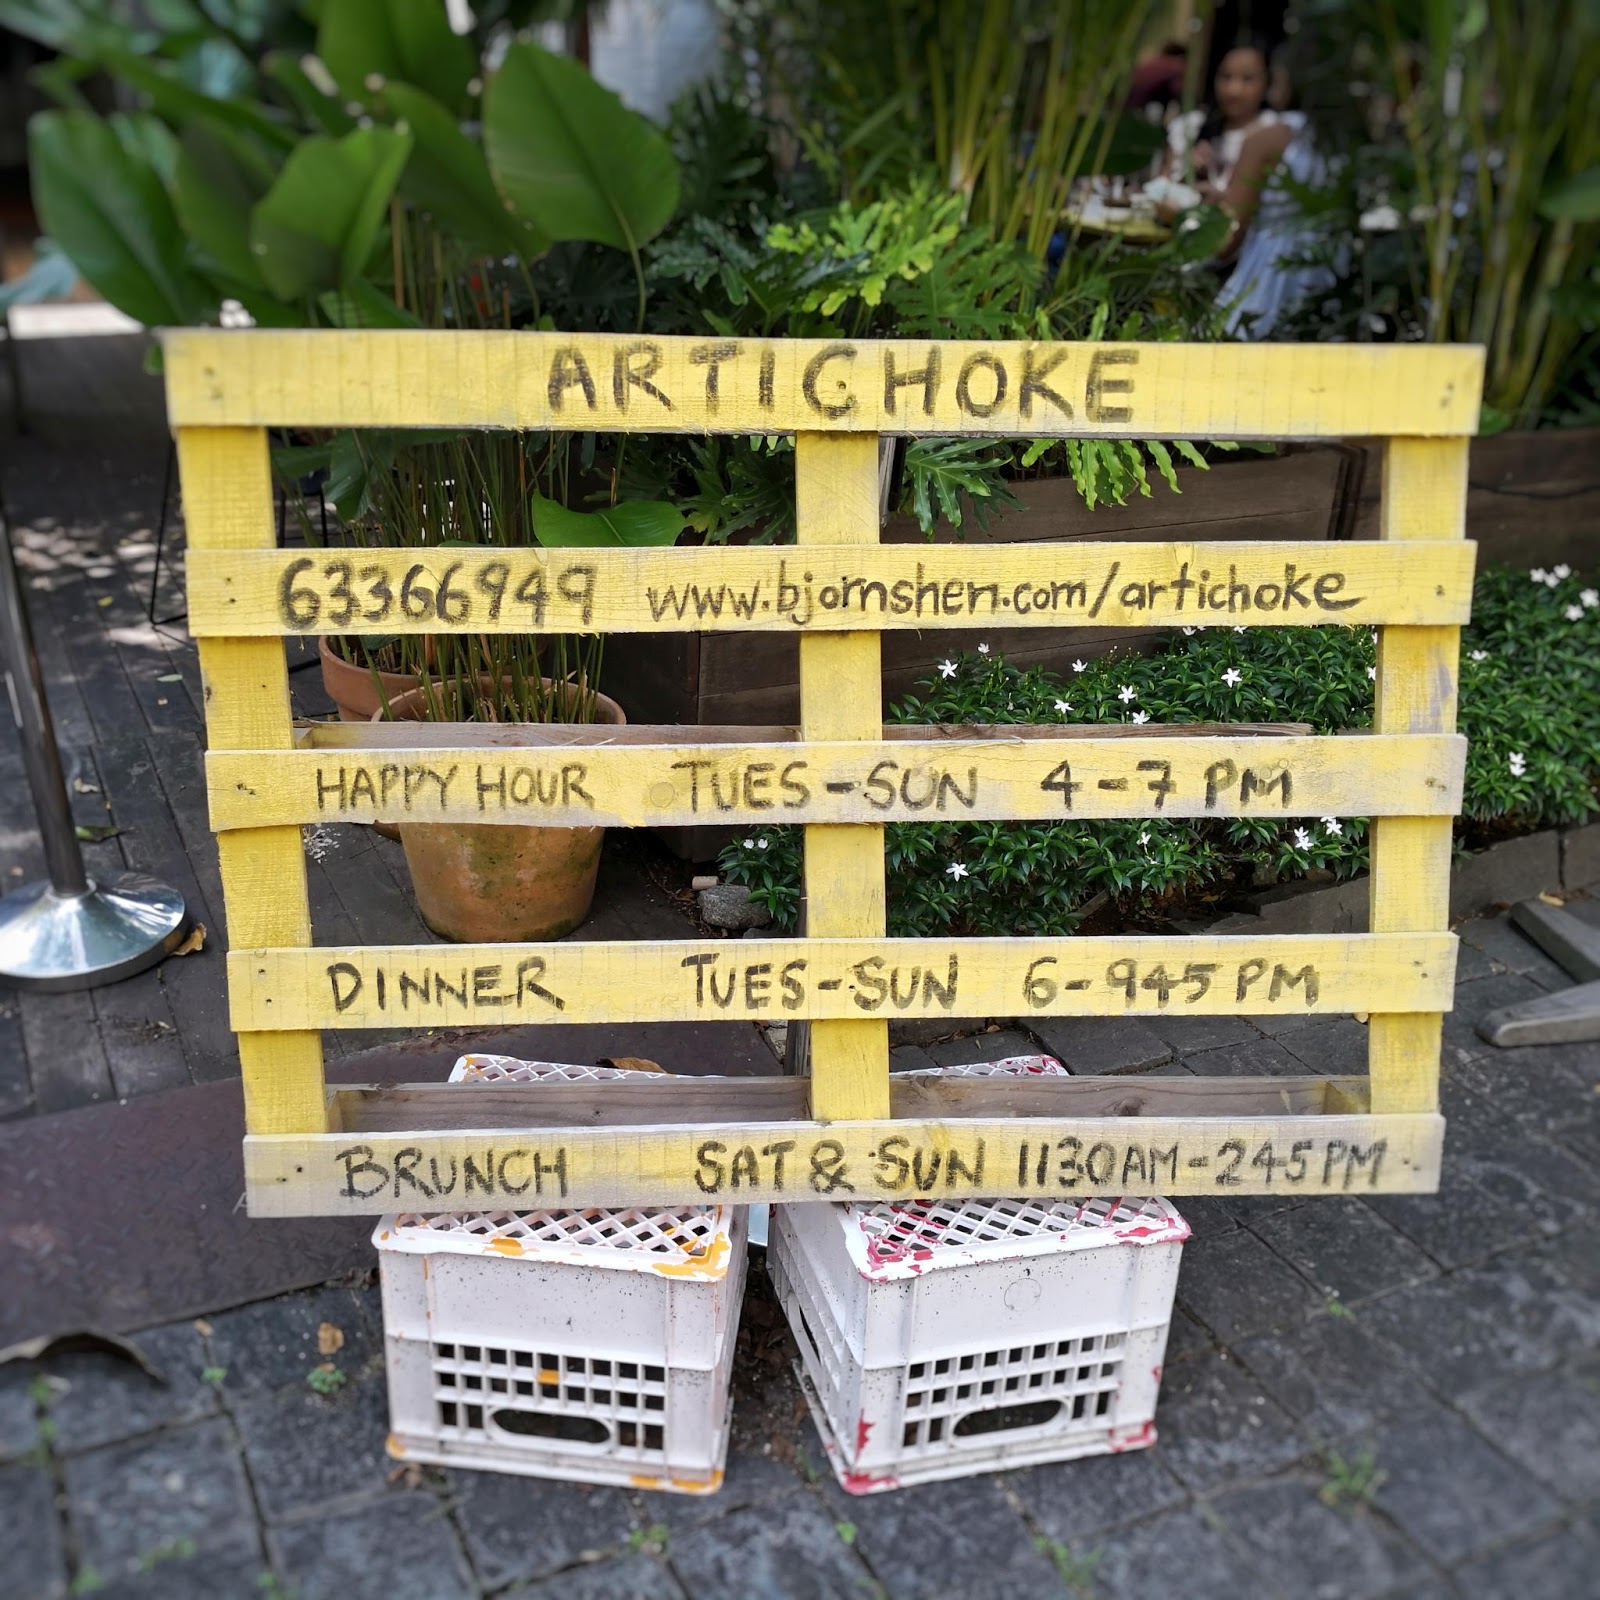 ARTICHOKE
63366949 www.bjornshen.com/artichoke
HAPPY HOUR TUES-SUN 4-7 PM
DINNER TUES-SUN 6-945 PM
BRUNCH SAT & SUN 1130AM-245PM